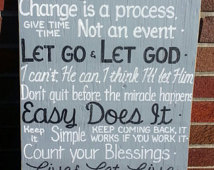 Change is a process,
GIVE TIME TIME Not an event.
LET GO & LET GOD.
I can't, He can, I think I'll let Him
Don't quit before the miracle happens
EASY DOES IT.
Keep It Simple KEEP COMING BACK, IT WORKS IF YOU WORK IT.
Count your Blessings.
Live & Let Live